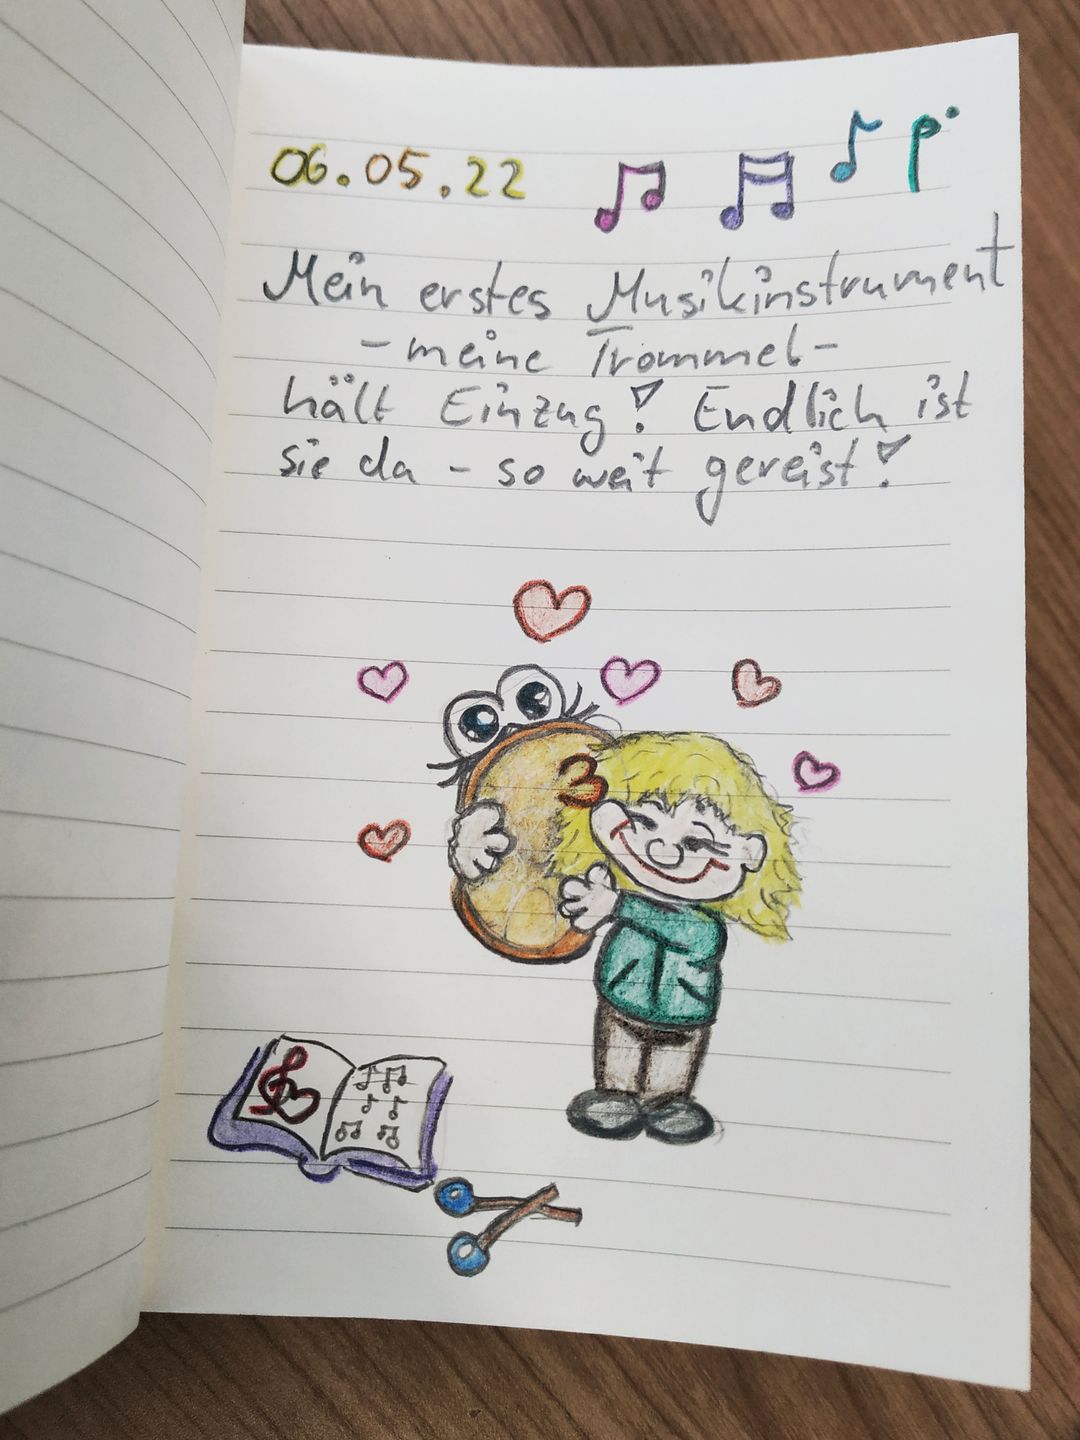 06.05.22
Mein erstes Musikinstrument
- meine Trommel -
hält Einzug! Endlich ist
sie da - so weit gereist!